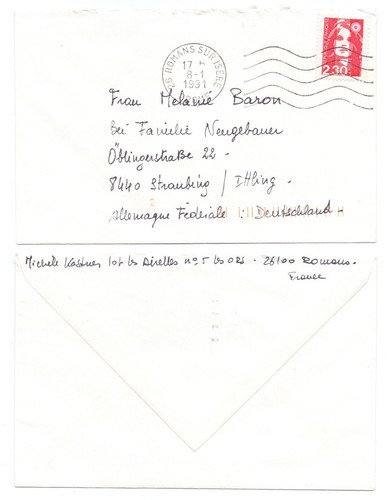 26 ROMANS SUR ISERE
17 H
8-1
1991
DROME
2,30
Frau Melanie Baron
bei Familie Neugebauer
Öblingerstraße 22 -
8440 Straubing / Ittling.
Allemagne Fédérale : Deutschland -
Michèle lot les Airelles n° 5 les ORS - 26100 Romans -
France